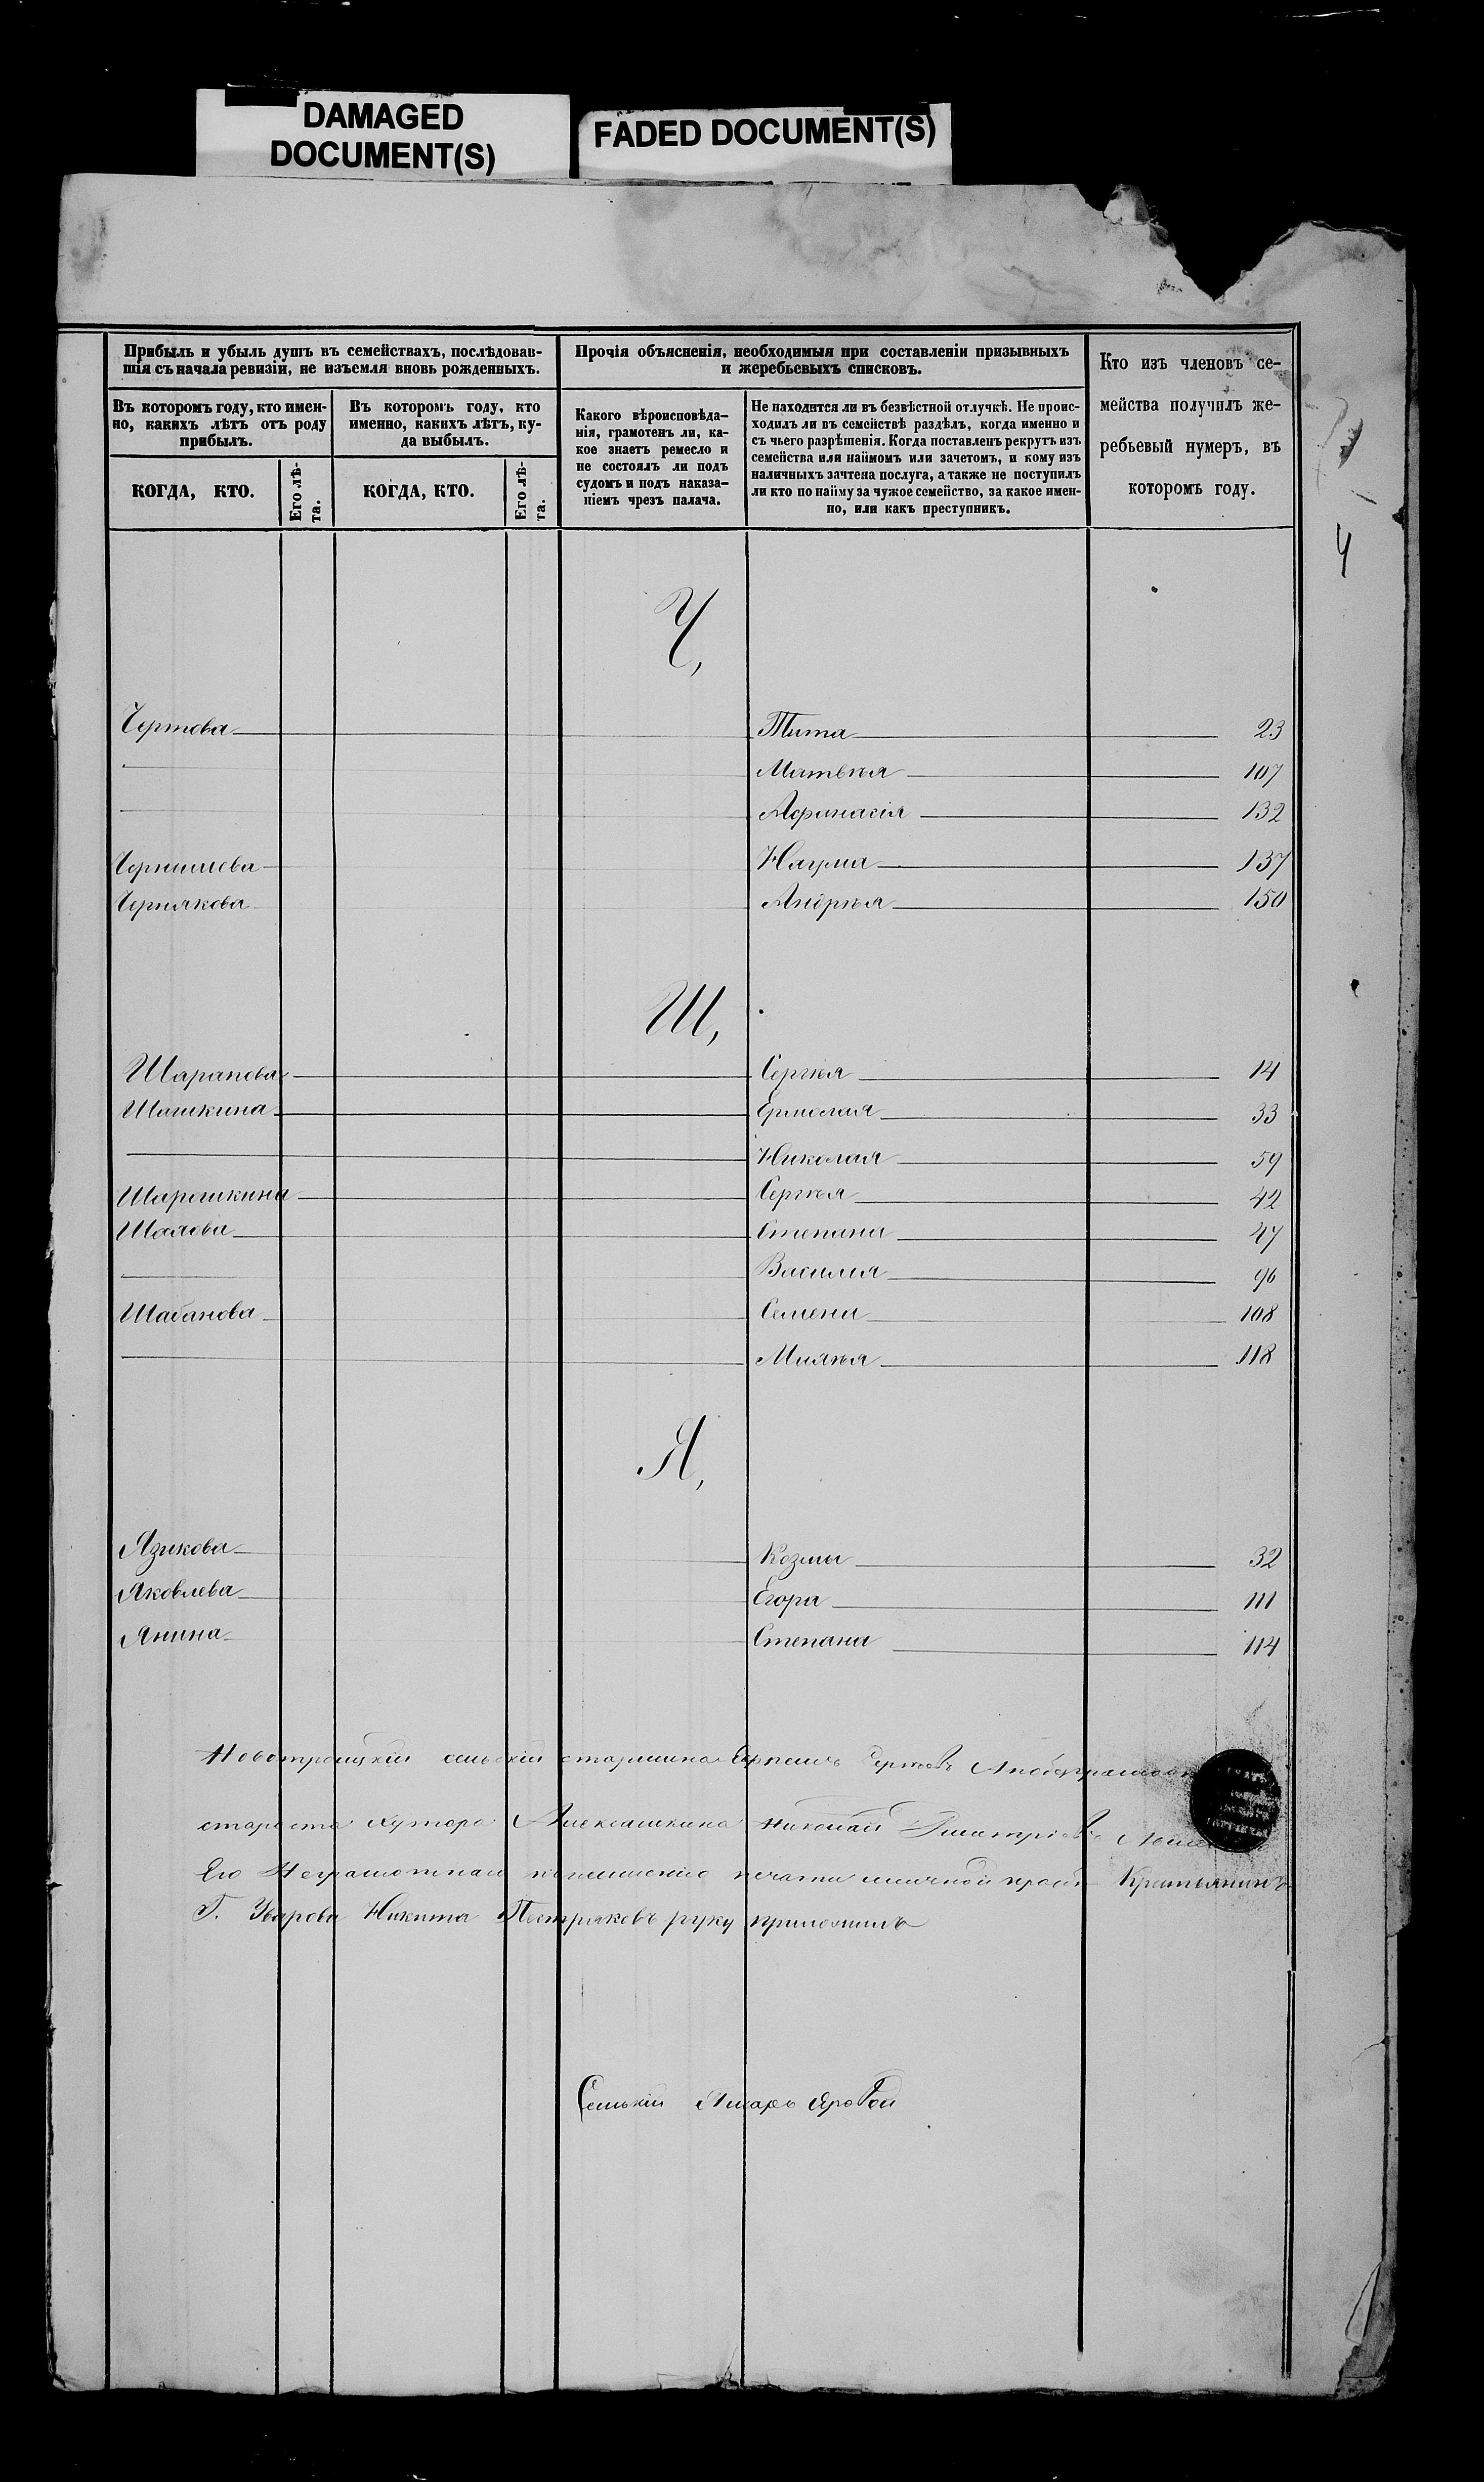 DAMAGED
DOCUMENT(S)
FADED DOCUMENT(S)
Прибыль и убыль душъ въ семействахъ, послѣдовав-
шія съ начала ревизіи, не изъемля вновь рожденныхъ.
Прочія объясненія, необходимыя при составленіи призывныхъ
и жеребьевыхъ списковъ.
Кто изъ членовъ се-
мейства получилъ же-
ребьевый нумеръ, въ
которомъ году.
Въ которомъ году, кто имен-
но, какихъ лѣтъ отъ роду
прибылъ.
Въ которомъ году, кто
именно, какихъ лѣтъ, ку-
да выбылъ.
Какого вѣроисповѣда-
нія, грамотенъ ли, ка-
кое знаетъ ремесло и
не состоялъ ли подъ
судомъ и подъ наказа-
ніемъ чрезъ палача.
Не находится ли въ безвѣстной отлучкѣ. Не проис-
ходилъ ли въ семействѣ раздѣлъ, когда именно и
съ чьего разрѣшенія. Когда поставленъ рекрутъ изъ
семейства или наймомъ или зачетомъ, и кому изъ
наличныхъ зачтена послуга, а также не поступилъ
ли кто по найму за чужое семейство, за какое имен-
но, или какъ преступникъ.
КОГДА, КТО.
Его лѣ-
та.
КОГДА, КТО.
Его лѣ-
та.
4
Ч,
Чертова Тита 23
Матвѣя 107
Афанасія 132
Чернышева Наума 137
Чернякова Андрѣя 150
Ш,
Шарапова Сергѣя 14
Шашкина Ермолая 33
Николая 59
Шарошкина Сергѣя 42
Шалова Степана 47
Василия 96
Шабанова Семена 108
118
Я,
Языкова Козмы 32
Яковлева Егора 111
Янина Степана 114
Новотроицкій сельскій старшина
староста хутора Алексашкина Николай
Его Неграмотнаго печати Крестьянинъ
Г. Уварова Никита руку приложилъ
Сельскій Писарь Яровой